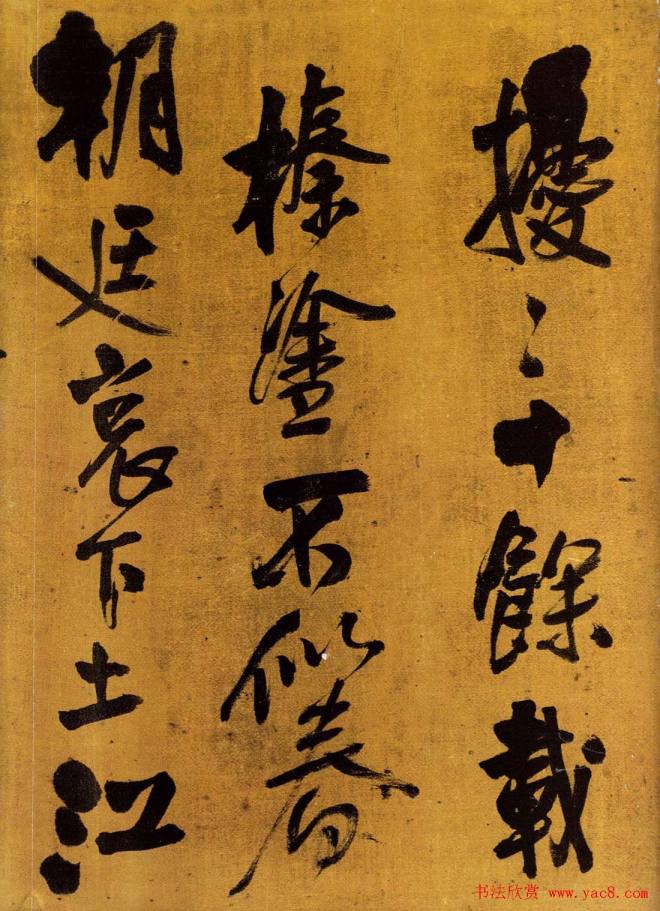 擾〻十餘載
榛塗不似昔
朝廷哀下土江
书法欣赏 www.yac8.com